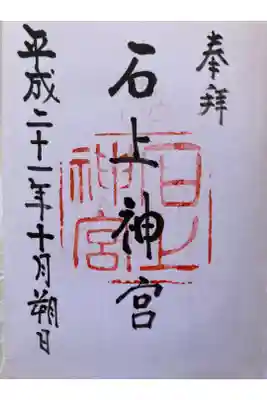 奉拝
石上神宮
平成二十一年十月朔日
石上神宮